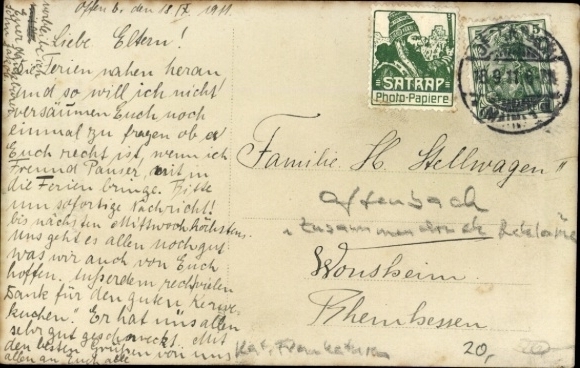 Offen b. den 18/IX. 1911.
Liebe Eltern!
Die Ferien nahen heran
und so will ich nicht
versäumen Euch noch
einmal zu fragen ob es
Euch recht ist, wenn ich
Freund Panser, mit in
die Ferien bringe. Bitte
um sofortige Nachricht!
bis nächsten Mittwoch höchstens.
Uns geht es allen noch gut
was wir auch von Euch
hoffen. Außerdem recht vielen
Dank für den guten Kerwe-
kuchen." Er hat uns allen
sehr gut geschmeckt. Mit
den besten Grüßen von uns
allen an Euch alle
SATRAP
Photo-Papiere
18.9.11
Familie H. Stellwagen"
Offenbach
Zusammendruck Reklame
Wonsheim.
Rheinhessen
20,